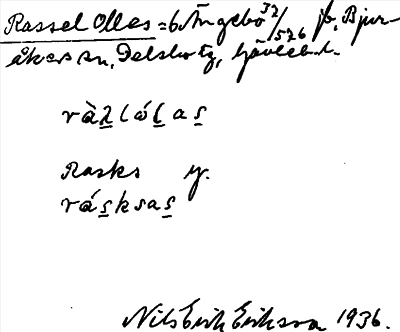 Rassel Olles = 6 Ängebo 32/526 fr. Bjur-
åkers sn, Delsbo tg, Gävleb. l.
ràʂlólas
Rasks y.
rásksas
Nils Erik Eriksson 1936.